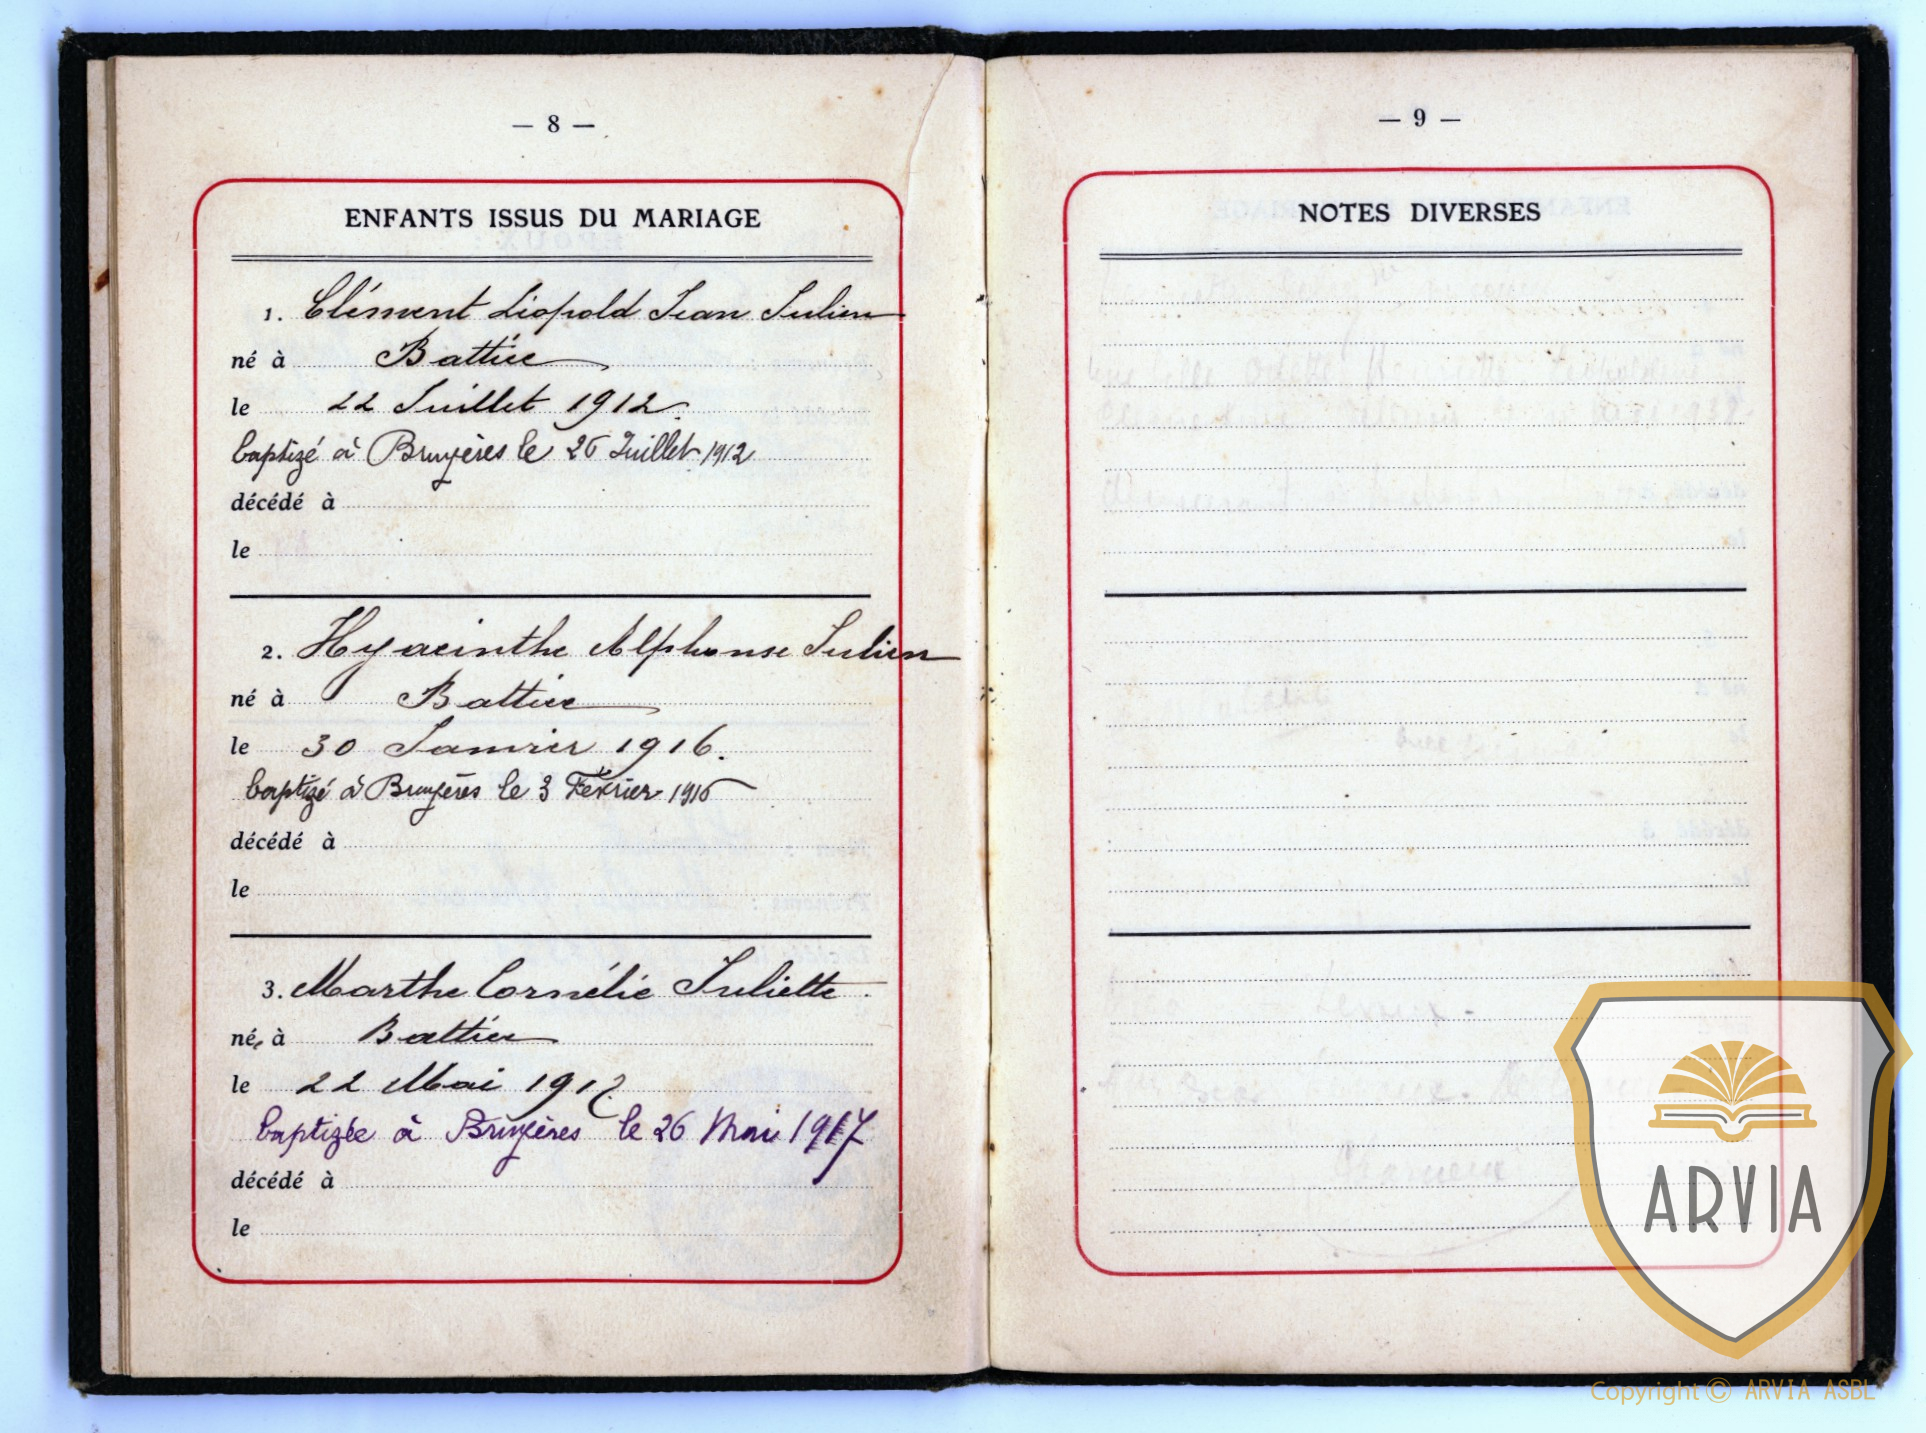 — 8 —
ENFANTS ISSUS DU MARIAGE
1. Clément Léopold Jean Julien
né à Battice
le 22 Juillet 1912.
baptizé à Bruyères le 26 Juillet 1912
décédé à
le
2. Hyacinthe Alphonse Julien
né à Battice
le 30 Janvier 1916.
baptizé à Bruyères le 3 Février 1916
décédé à
le
3. Marthe Cornélie Juliette.
née à Battice
le 22 Mai 1917.
baptizée à Bruyères le 26 Mai 1917
décédé à
le
— 9 —
NOTES DIVERSES
ARVIA
Copyright © ARVIA ASBL